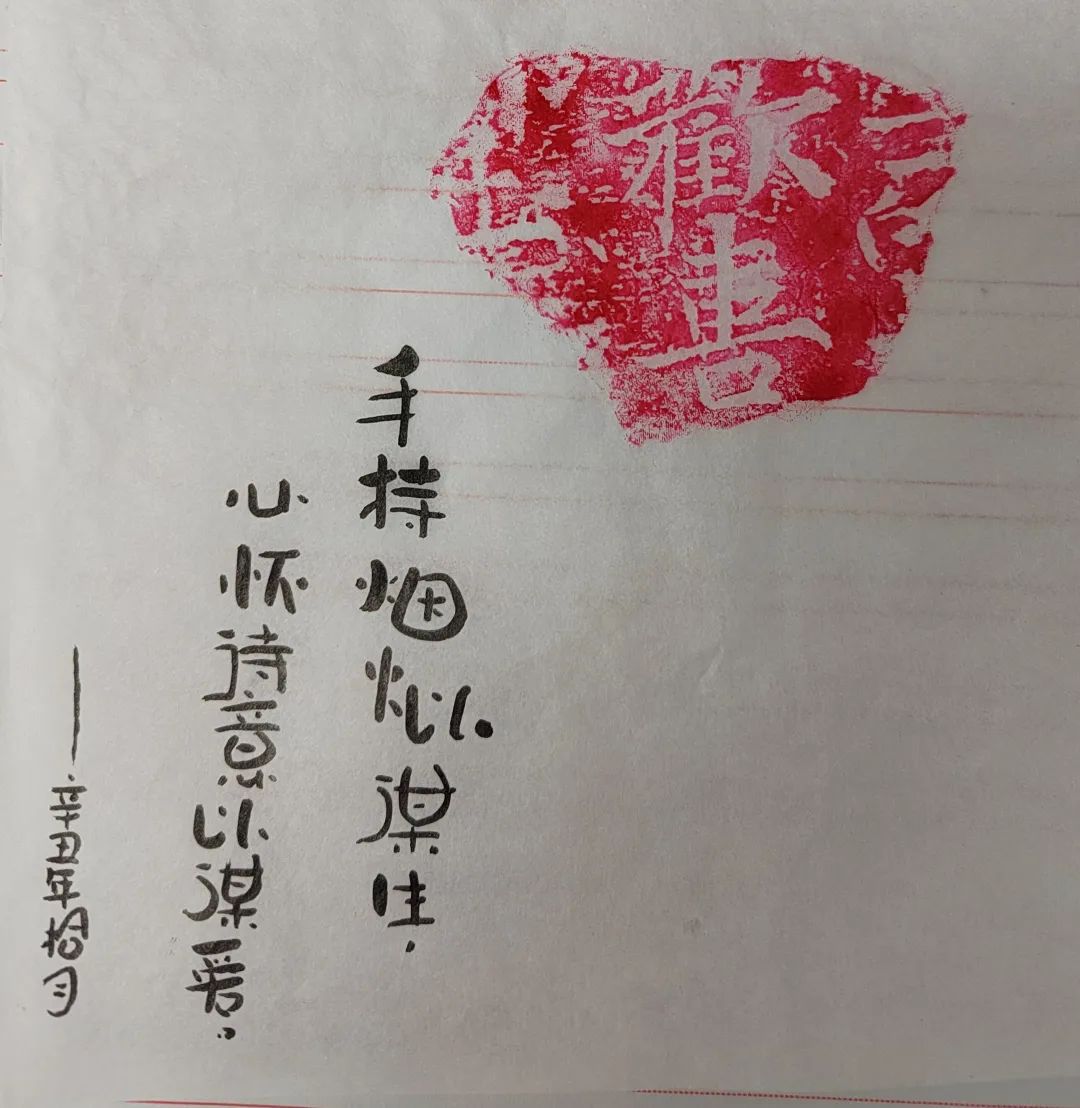 歡喜
手持烟火以谋生.
心怀诗意以谋
——辛丑年拾月